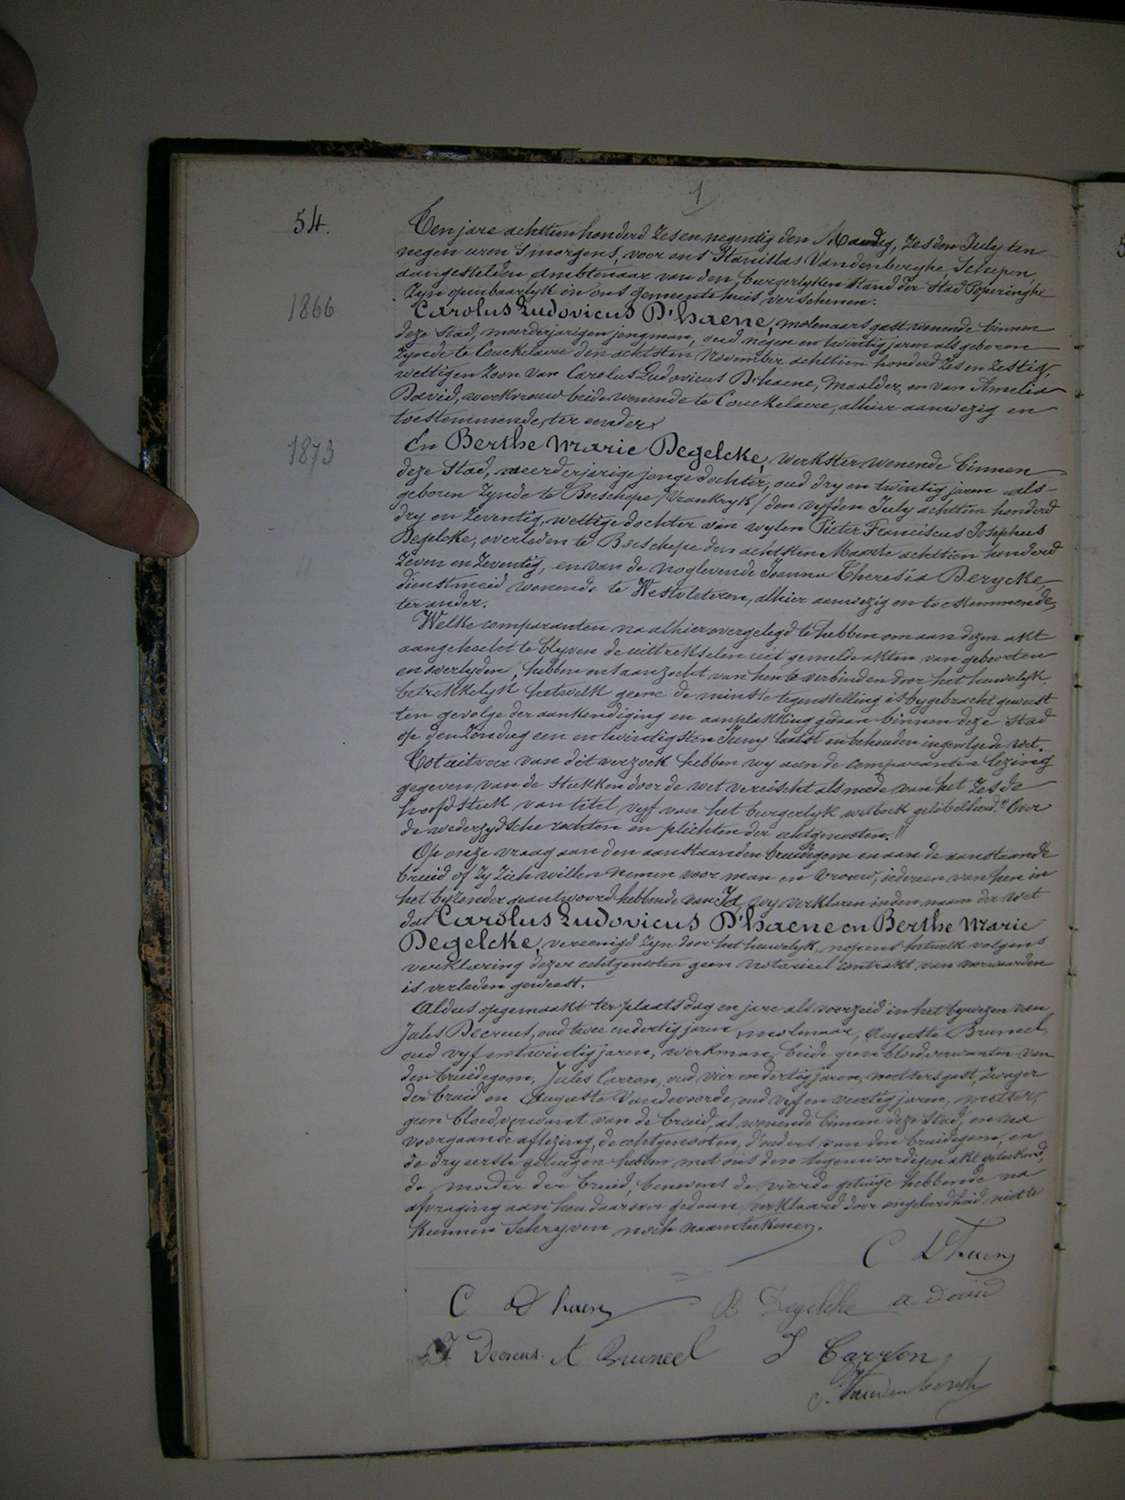 1
54.
Ten jare achttien honderd zes en negentig den Maandag, zesden July ten
negen uren s'morgens, voor ons Stanislas Vandenberghe, Schepen,
aangestelden ambtenaar van den burgerlyken stand der Stad Poperinghe
Zyn openbaarlyk in ons gemeentehuis verschenen.
1866
Carolus Ludovicus D'haene, molenaarsgast wonende binnen
deze stad, meerderjarigen jongman, oud negen en twintig jaren als geboren
zynde te Couckelaere den achtsten November achttien honderd zes en zestig,
wettigen zoon van Carolus Ludovicus D'haene, maalder, en van Amelia
David, werkvrouw beide wonende te Couckelaere, alhier aanwezig en
toestemmende, ter eender
1873
En Berthe Marie Degelcke, werkster wonende binnen
deze Stad, meerderjarige jonge dochter, oud dry en twintig jaren als
geboren zynde te Boeschepe /Vrankryk/ den vyfden July achttien honderd
dry en zeventig, wettige dochter van wylen Pieter Franciscus Josephus
Degelcke, overleden te Boeschepe den achtsten Maarte achttien honderd
zeven en zeventig, en van de noglevende Joanna Theresia Derycke,
dienstmeid wonende te Westvleteren, alhier aanwezig en toestemmende,
ter ander.
Welke comparanten na alhier overgelegd te hebben om aan dezen akt
aangehecht te blyven de uittrekselen uit gemelde akten van geboorten
en overlyden, hebben ons aanzocht van hen te verbinden door het huwelyk
betrekkelyk hetwelk geene de minste tegenstelling is bygebracht geweest
ten gevolge der aankondiging en aanplakking gedaan binnen deze Stad
op den Zondag een en twintigsten Juny laatst en behouden ingevolge de wet.
Tot uitvoer van dit verzoek hebben wy aan de comparanten lezing
gegeven van de stukken door de wet vereischt als mede van het zesde
hoofdstuk van titel vyf van het burgerlyk wetboek getiteld "Over
de wederzydsche rechten en plichten der echtgenooten."
Op onze vraag aan den aanstaanden bruidegom en aan de aanstaande
bruid of zy zich willen nemen voor man en vrouw, iedereen van hen in
het byzonder geantwoord hebbende van Ja, wy verklaren in den naam der wet
dat Carolus Ludovicus D'haene en Berthe Marie
Degelcke, vereenigd zyn door het huwelyk, nopens hetwelk volgens
verklaring dezer echtgenooten geen notarieel contrakt van voorwaarden
is verleden geweest.
Aldus opgemaakt ter plaats dag en jare als voorzeid in het bywezen van
Jules Decreus, oud twee en dertig jaren, molenaar, Auguste Bruneel,
oud vyf en twintig jaren, werkman, beide geen bloedverwanten van
den bruidegom, Jules Carron, oud vier en dertig jaren, metsersgast, zwager
der bruid en Auguste Vandevoorde, oud vyf en veertig jaren, metser,
geen bloedverwant van de bruid, al wonende binnen deze Stad, en na
voorgaande aflezing, de echtgenooten, d'ouders van den bruidegom, en
de dry eerste getuigen hebben met ons den tegenwoordigen akt geteekend,
de moeder der bruid, benevens de vierde getuige hebbende na
afvraging aan hen daarover gedaan verklaard door ongeleerdheid niet te
kunnen schryven noch naamteekenen.
C D'haene
C D'haene B Degelcke a david
J. Decreus. A Bruneel J Carron
S. Vandenberghe